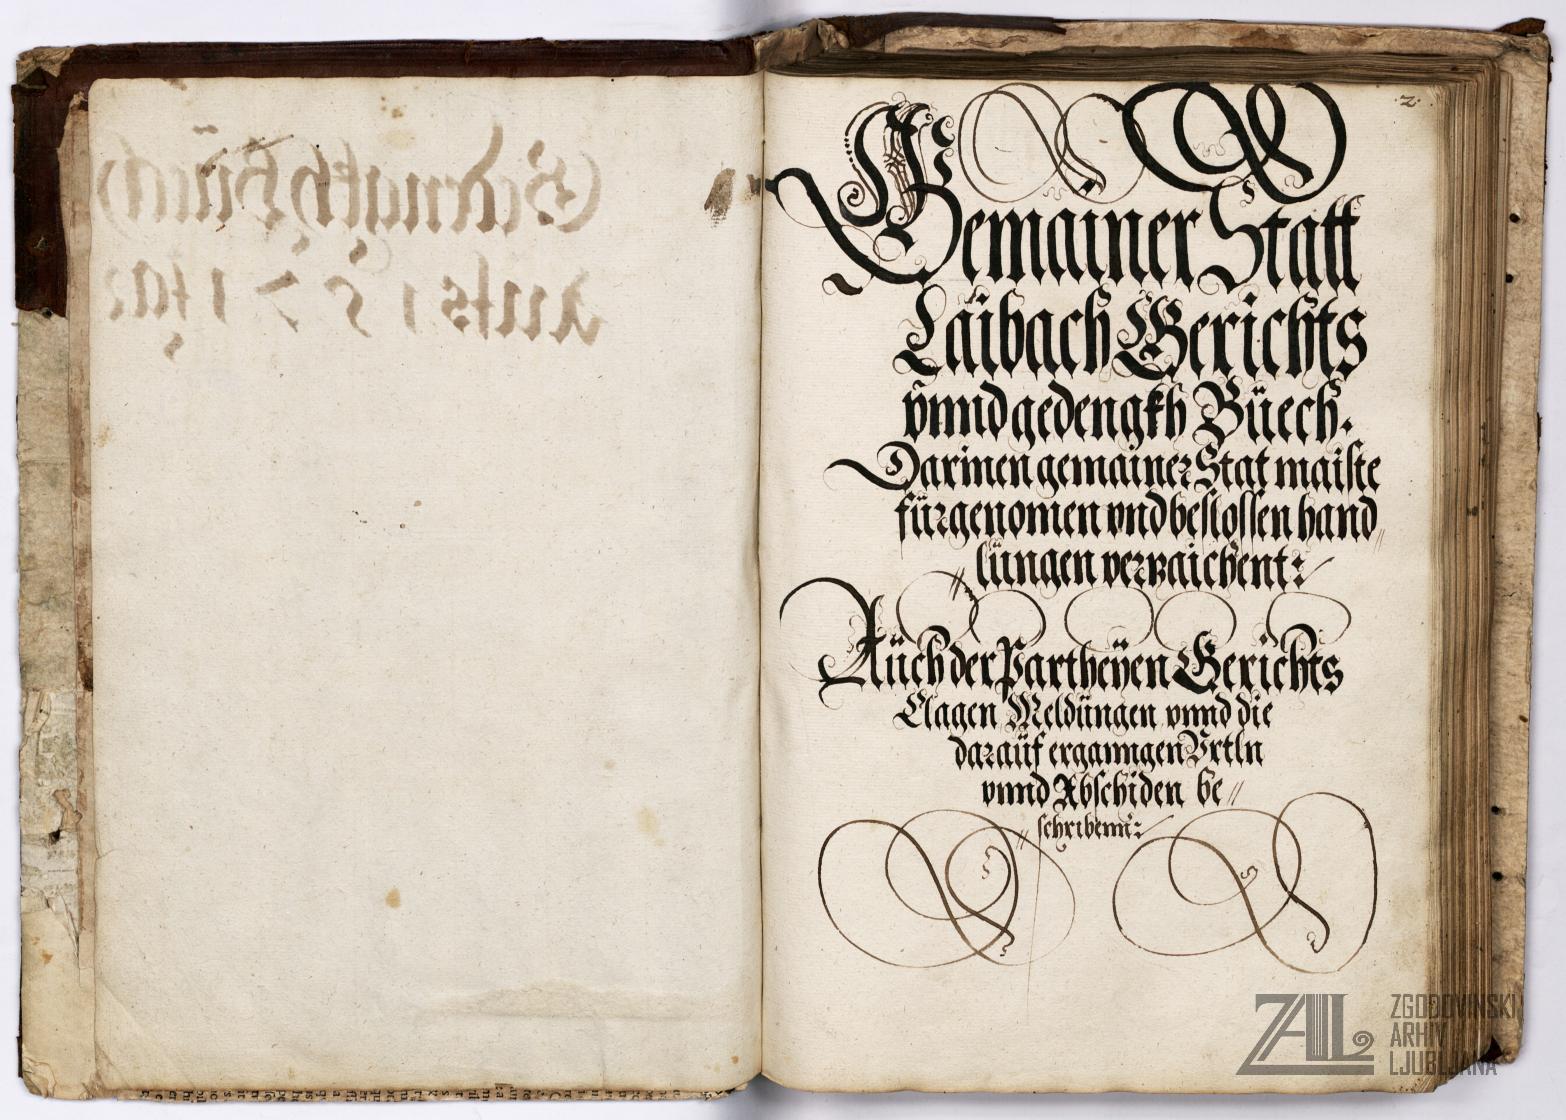 Gedenckh Büech
aufs 1571 Jar
.2.
Gemainer Statt
Laibach Gerichts
vnnd gedengkh Büech.
Darinen gemainer Stat maiste
fürgenomen vnd beslossen hand
lüngen verzaichent:
Aüch der Partheÿen Gerichts
Clagen Meldüngen vnnd die
daraüf erganngen Vrtln
vnnd Abschiden be
schribenn:
ZAL
ZGODOVINSKI
ARHIV
LJUBLJANA